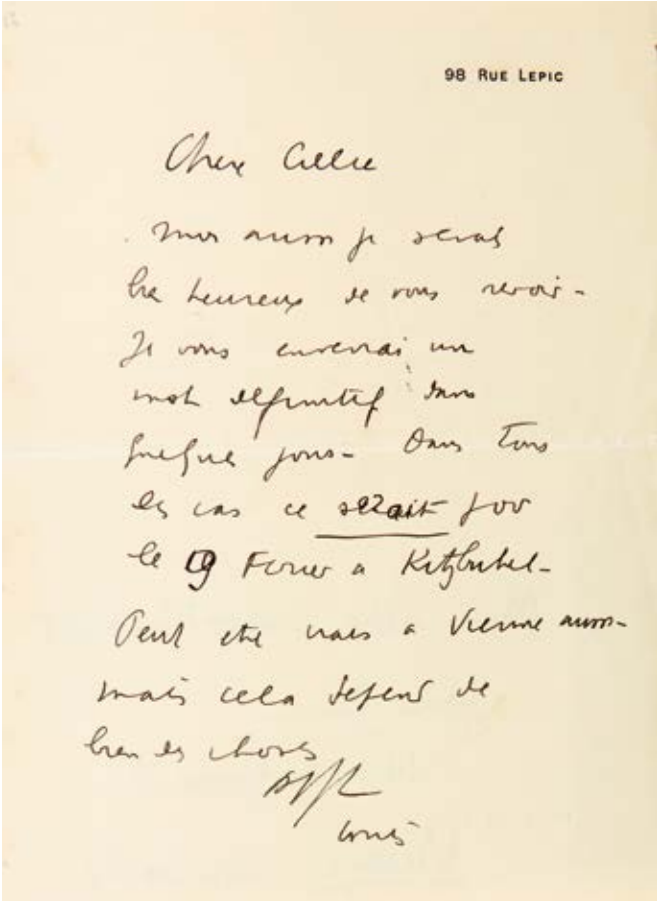 98 RUE LEPIC
Chere Cillie
Moi aussi je serais
bien heureux de vous revoir -
Je vous enverrai un
mot definitif dans
quelques jours - Dans tous
les cas ce serait pour
le 19 Fevrier a Kitzbuhel -
Peut etre irais a Vienne aussi -
mais cela depend de
bien des choses
Louis